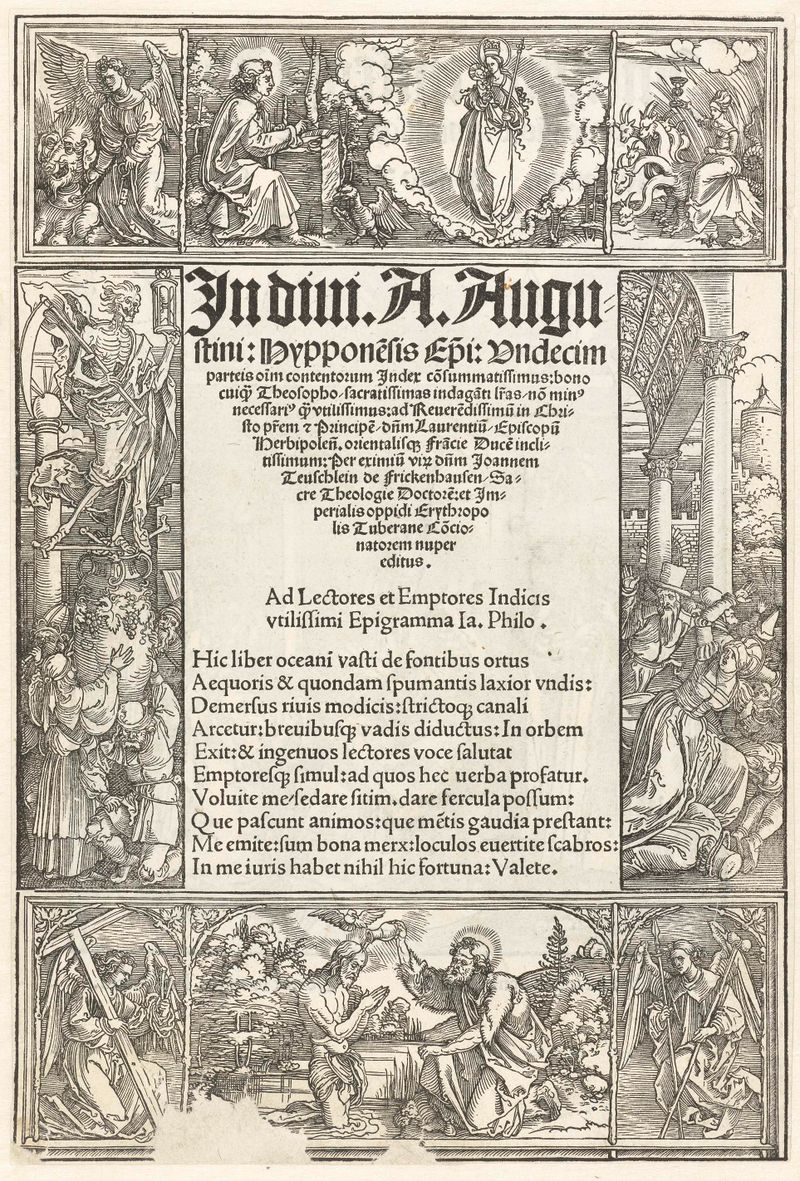 In diui. A. Augu⸗
stini: Hypponēsis Ep̄i: Vndecim
parteis oīm contentorum Index cōsummatissimus: bono
cuiqꝫ Theosopho/ sacratissimas indagāti lr̄as/ nō minꝰ
necessariꝰ qꝫ vtilissimus: ad Reuerēdissimū in Chri⸗
sto pr̄em ⁊ Principē/ dn̄m Laurentiū/ Episcopū
Herbipoleñ. orientalisqꝫ Frācie Ducē incli⸗
tissimum: Per eximiū viꝝ dn̄m Joannem
Teuschlein de Frickenhausen/ Sa⸗
cre Theologie Doctorē: et Im⸗
perialis oppidi Erythropo
lis Tuberane Cōcio⸗
natorem nuper
editus.
Ad Lectores et Emptores Indicis
vtilissimi Epigramma Ia. Philo.
Hic liber oceani vasti de fontibus ortus
Aequoris & quondam spumantis laxior vndis:
Demersus riuis modicis: strictoqꝫ canali
Arcetur: breuibusqꝫ vadis diductus: In orbem
Exit: & ingenuos lectores voce salutat
Emptoresqꝫ simul: ad quos hec uerba profatur.
Voluite me/ sedare sitim. dare fercula possum:
Que pascunt animos: que mētis gaudia prestant:
Me emite: sum bona merx: loculos euertite scabros:
In me iuris habet nihil hic fortuna: Valete.